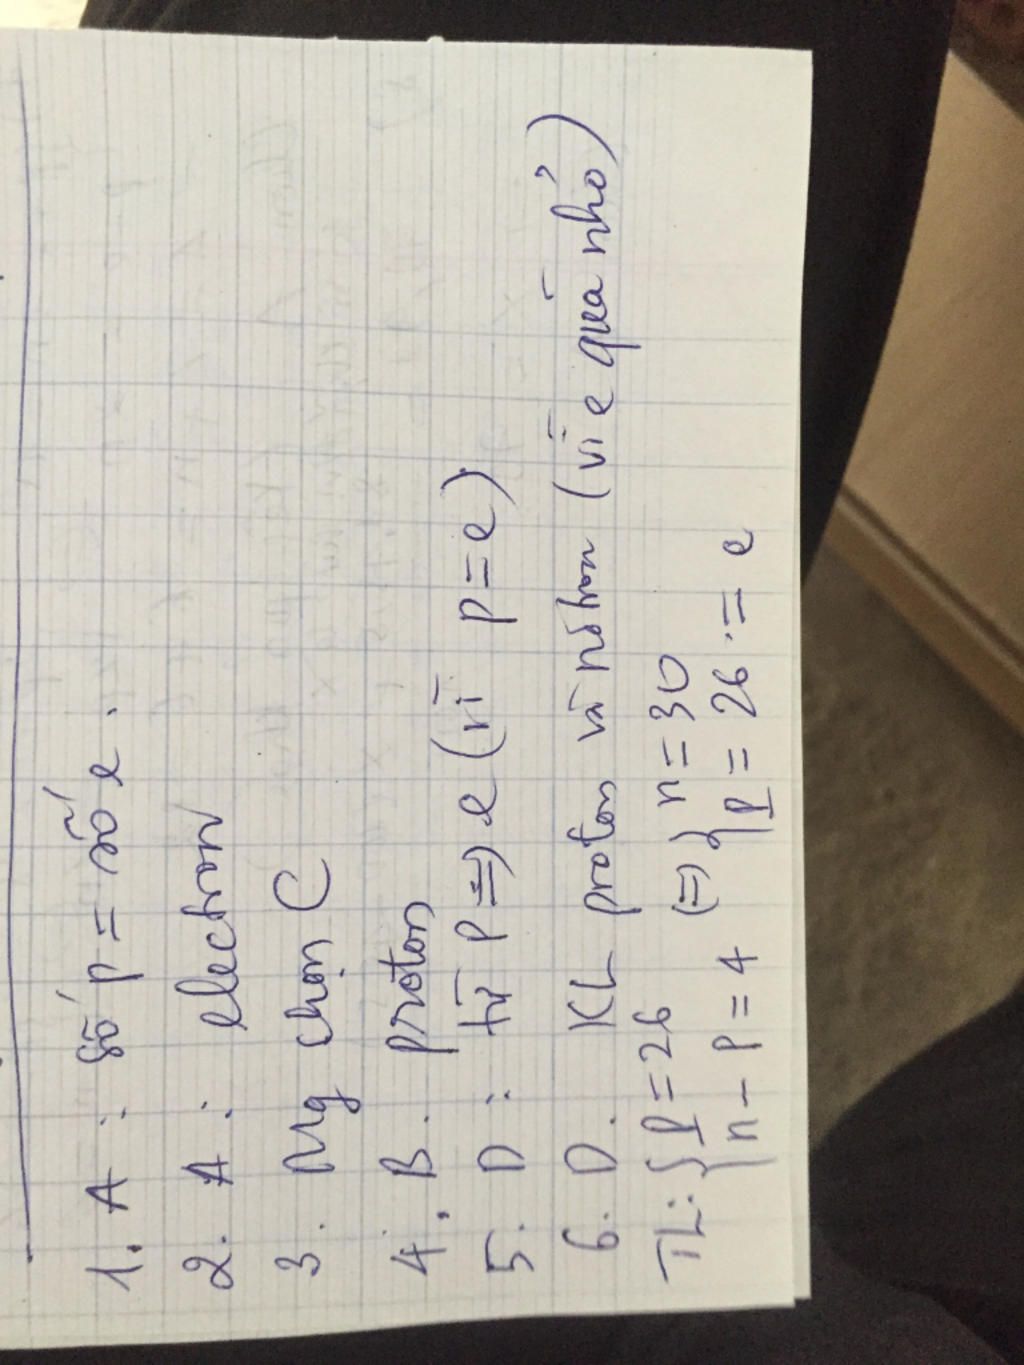 1. A : số p = số e.
2. A : electron
3. Mg chọn C
4. B. proton
5. D : từ p => e (vì p = e)
6. D. KL proton và nơtron (vì e quá nhỏ)
TL: { p = 26 (=) { n = 30
n - p = 4 p = 26 = e